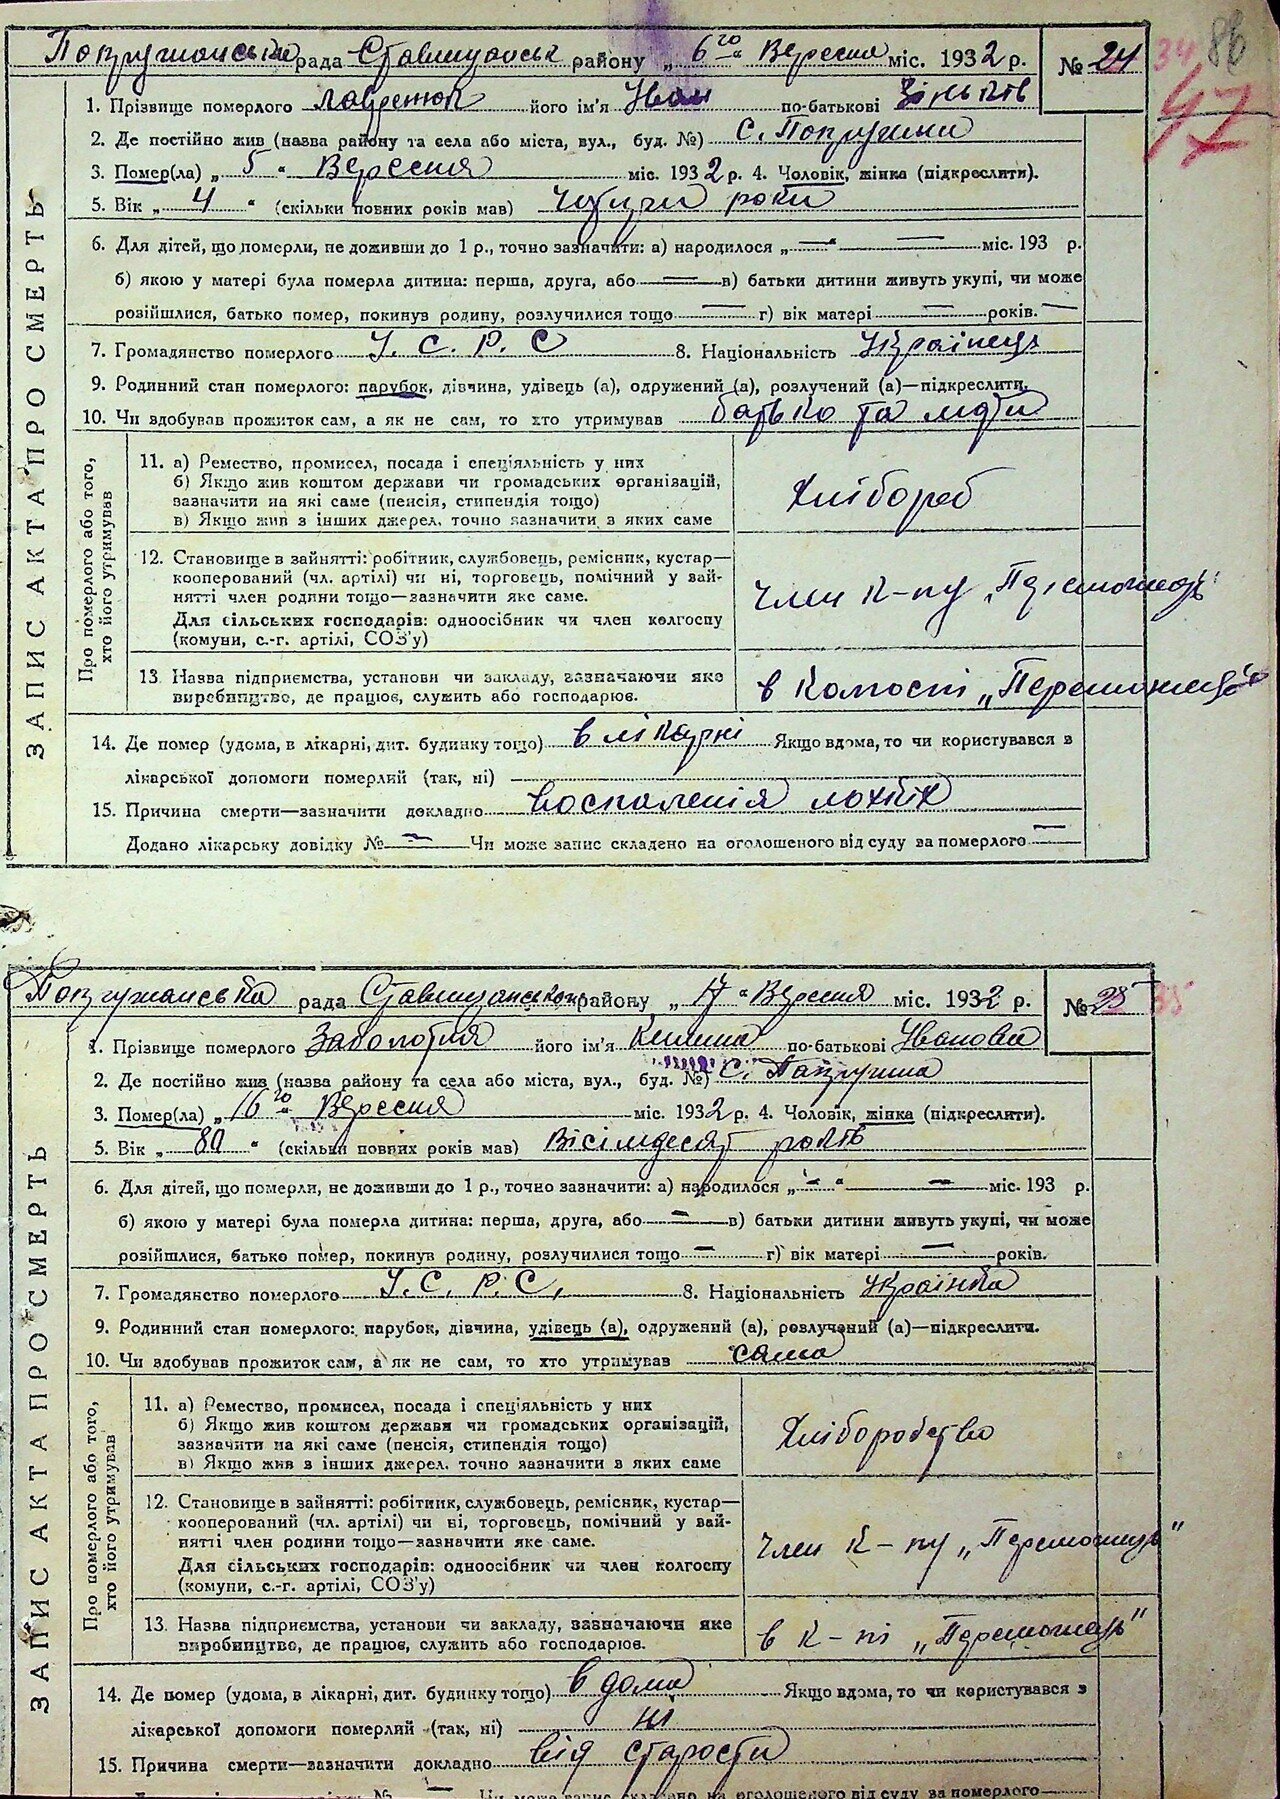 86
34
47
рада району „ 6го “ Вересня міс. 1932 р. № 24
1. Прізвище померлого його ім'я Иван по-батькові
2. Де постійно жив (назва району та села або міста, вул., буд. №) С. Попружни
3. Помер(ла) „ 5 “ Вересня міс. 1932 р. 4. Чоловік, жінка (підкреслити).
5. Вік „ 4 “ (скільки повних років мав) Чотири роки
6. Для дітей, що померли, не доживши до 1 р., точно зазначити: а) народилося „—“ — міс. 193 р.
б) якою у матері була померла дитина: перша, друга, або — в) батьки дитини живуть укупі, чи може
розійшлися, батько помер, покинув родину, розлучилися тощо — г) вік матері — років. —
7. Громадянство померлого У. С. Р. С 8. Національність Українець
9. Родинний стан померлого: парубок, дівчина, удівець (а), одружений (а), розлучений (а)—підкреслити.
10. Чи здобував прожиток сам, а як не сам, то хто утримував батько та мати
ЗАПИС АКТА ПРО СМЕРТЬ
Про померлого або того,
хто його утримував
11. а) Ремество, промисел, посада і спеціяльність у них
б) Якщо жив коштом держави чи громадських організацій,
зазначити на які саме (пенсія, стипендія тощо)
в) Якщо жив з інших джерел, точно зазначити з яких саме
Хлібороб
12. Становище в зайнятті: робітник, службовець, ремісник, кустар—
кооперований (чл. артілі) чи ні, торговець, помічний у зай-
нятті член родини тощо—зазначити яке саме.
Для сільських господарів: одноосібник чи член колгоспу
(комуни, с.-г. артілі, СОЗ'у)
член К-пу „Переможець“
13. Назва підприємства, установи чи закладу, зазначаючи яке
виробництво, де працює, служить або господарює.
в Колгоспі „Переможець“
14. Де помер (удома, в лікарні, дит. будинку тощо) в лікарні Якщо вдома, то чи користувався з
лікарської допомоги померлий (так, ні)
15. Причина смерти—зазначити докладно воспаленія
Додано лікарську довідку № — Чи може запис складено на оголошеного від суду за померлого —
рада району „ 17 “ Вересня міс. 1932 р. № 25 35
1. Прізвище померлого Заболотня його ім'я Килина по-батькові Иванова
2. Де постійно жив (назва району та села або міста, вул., буд. №) С. Попружна
3. Помер(ла) „ 16го “ Вересня міс. 1932 р. 4. Чоловік, жінка (підкреслити).
5. Вік „ 80 “ (скільки повних років мав) Вісімдесят років
6. Для дітей, що померли, не доживши до 1 р., точно зазначити: а) народилося „—“ — міс. 193 р.
б) якою у матері була померла дитина: перша, друга, або — в) батьки дитини живуть укупі, чи може
розійшлися, батько помер, покинув родину, розлучилися тощо — г) вік матері — років.
7. Громадянство померлого У. С. Р. С. 8. Національність Українка
9. Родинний стан померлого: парубок, дівчина, удівець (а), одружений (а), розлучений (а)—підкреслити.
10. Чи здобував прожиток сам, а як не сам, то хто утримував сама
ЗАПИС АКТА ПРО СМЕРТЬ
Про померлого або того,
хто його утримував
11. а) Ремество, промисел, посада і спеціяльність у них
б) Якщо жив коштом держави чи громадських організацій,
зазначити на які саме (пенсія, стипендія тощо)
в) Якщо жив з інших джерел, точно зазначити з яких саме
Хліборобство
12. Становище в зайнятті: робітник, службовець, ремісник, кустар—
кооперований (чл. артілі) чи ні, торговець, помічний у зай-
нятті член родини тощо—зазначити яке саме.
Для сільських господарів: одноосібник чи член колгоспу
(комуни, с.-г. артілі, СОЗ'у)
член К-пу „Переможець“
13. Назва підприємства, установи чи закладу, зазначаючи яке
виробництво, де працює, служить або господарює.
в К-пі „Переможець“
14. Де помер (удома, в лікарні, дит. будинку тощо) в дома Якщо вдома, то чи користувався з
лікарської допомоги померлий (так, ні) ні
15. Причина смерти—зазначити докладно від старости
№ — Чи може запис складено на оголошеного від суду за померлого—